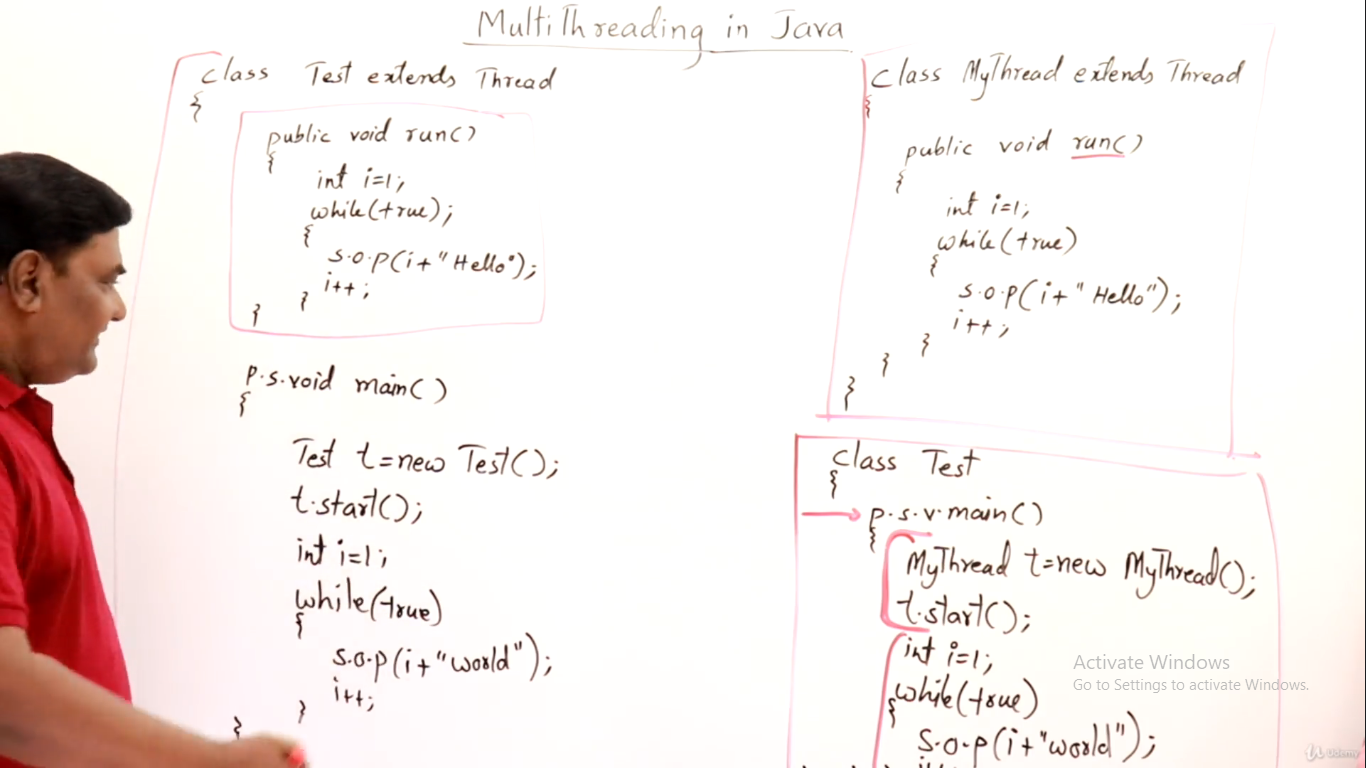 MultiThreading in Java
class Test extends Thread
{
public void run()
{
int i=1;
while(true);
{
s.o.p(i+"Hello");
i++;
}
}
p.s.void main()
{
Test t=new Test();
t.start();
int i=1;
while(true)
{
s.o.p(i+"world");
i++;
}
}
class MyThread extends Thread
{
public void run()
{
int i=1;
while(true)
{
s.o.p(i+"Hello");
i++;
}
}
}
class Test
{
p.s.v.main()
{
MyThread t=new MyThread();
t.start();
int i=1;
while(true)
{
s.o.p(i+"world");
Activate Windows
Go to Settings to activate Windows.
Udemy